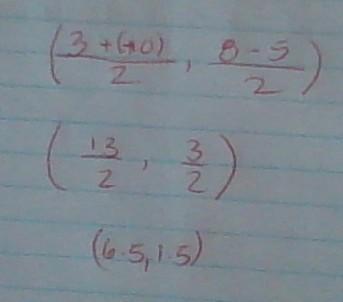 (3+(10)/2, 8-5/2)
(13/2, 3/2)
(6.5, 1.5)